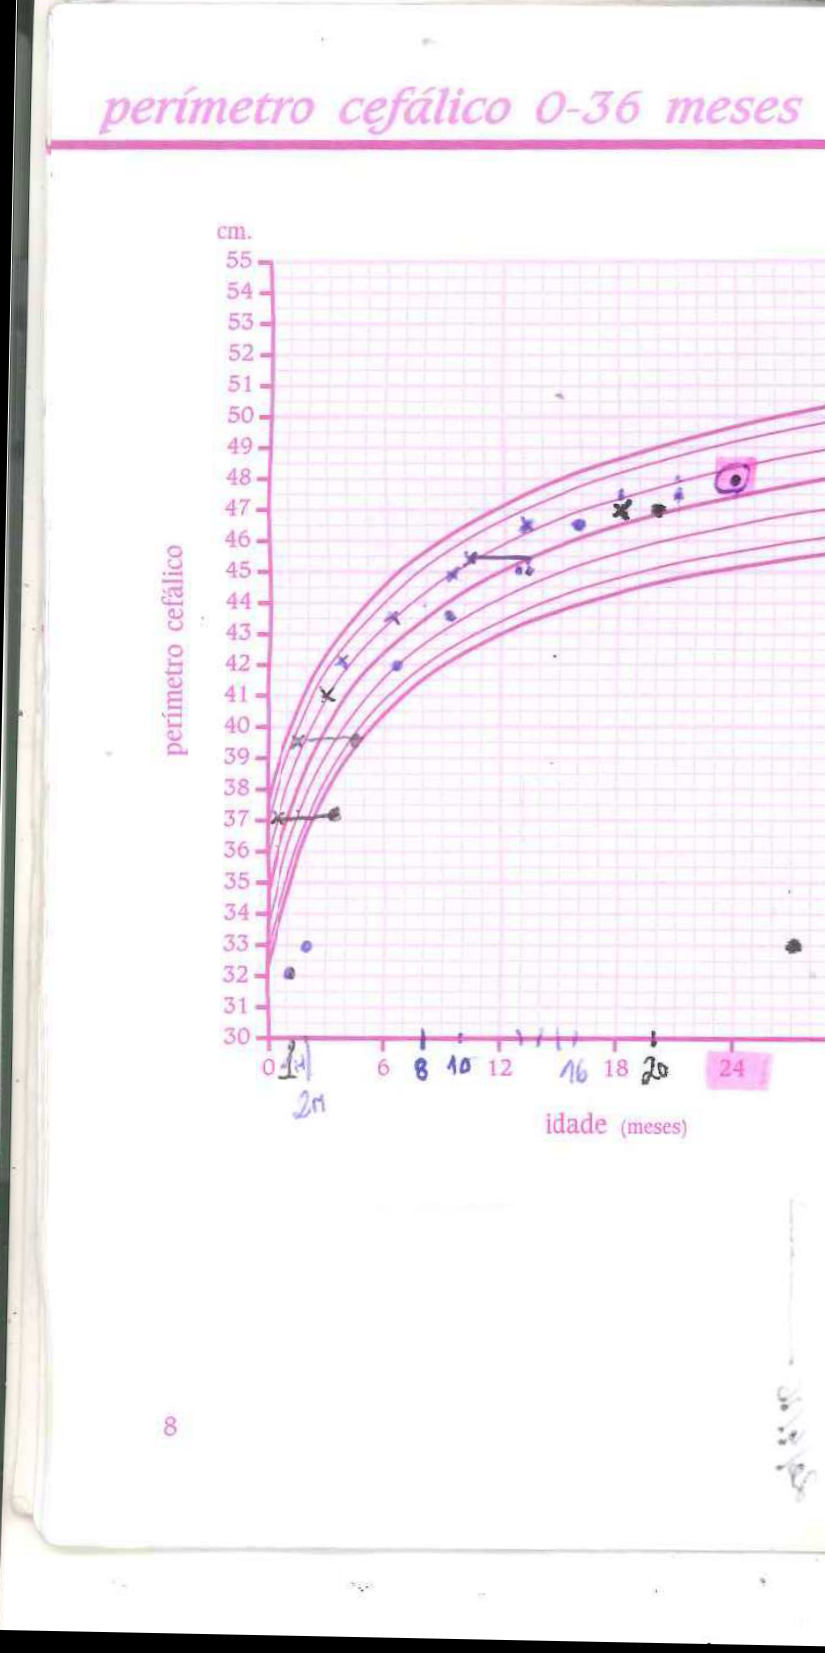 perímetro cefálico 0-36 meses
cm.
55
54
53
52
51
50
49
48
47
46
45
44
43
42
41
40
39
38
37
36
35
34
33
32
31
30
perímetro cefálico
0 1M 6 8 10 12 16 18 20 24
2M
idade (meses)
8